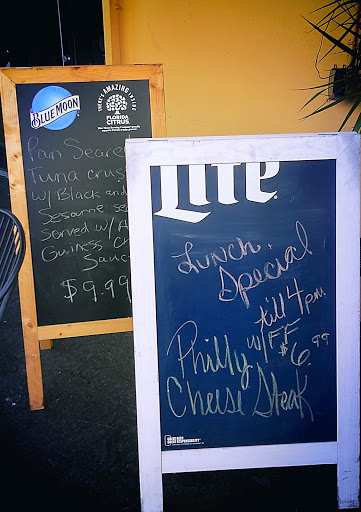 BLUE MOON
THERE'S AMAZING INSIDE
FLORIDA
CITRUS
Pan Seared
Tuna crus
w/ Black and
Sesame se
Served w/ A
Guiness Ch
Sauc
$9.99
Lite
Lunch
Special
till 4 pm
Philly w/ FF
$6.99
Cheese Steak